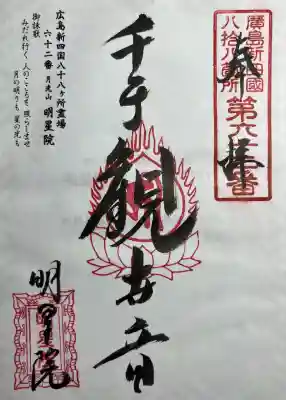 廣島新四國
八拾八箇所
第六十二番
奉拝
千手観世音
明星院
広島新四国八十八ヶ所霊場
六十二番 月光山 明星院
御詠歌
みだれ行く 人のこころを 照らしませ
月の明りも 星の光も